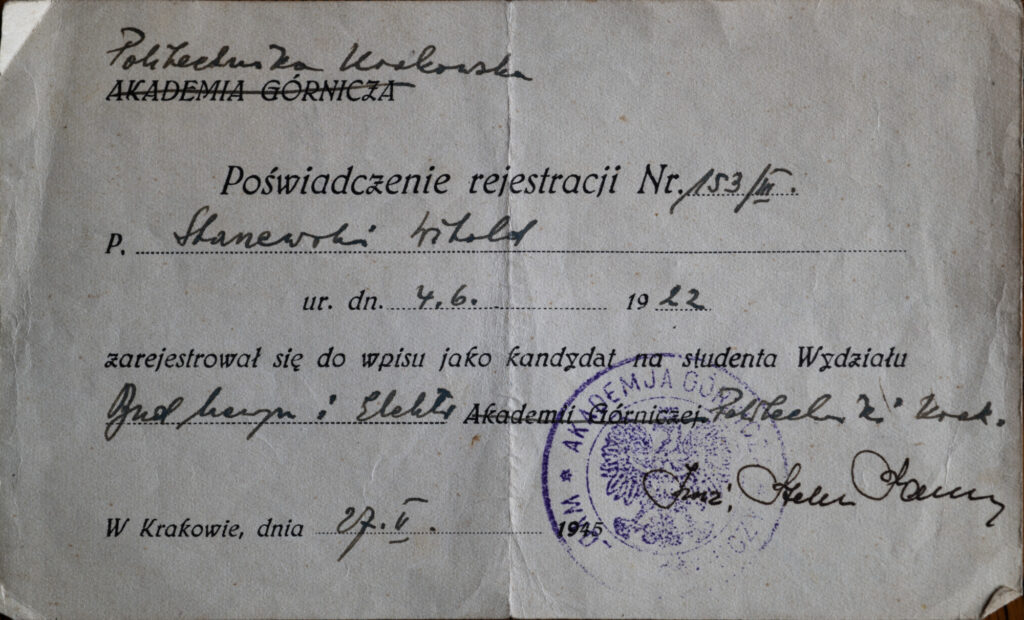 Politechnika Krakowska
AKADEMIA GÓRNICZA
Poświadczenie rejestracji Nr. 153/III.
P. Stanewski Witold
ur. dn. 4.6. 1922
zarejestrował się do wpisu jako kandydat na studenta Wydziału
Bud maszyn i Elektr Akademii Górniczej Politechniki Krak.
W Krakowie, dnia 27.II. 1945
AKADEMJA GÓRNICZA W
Inż.